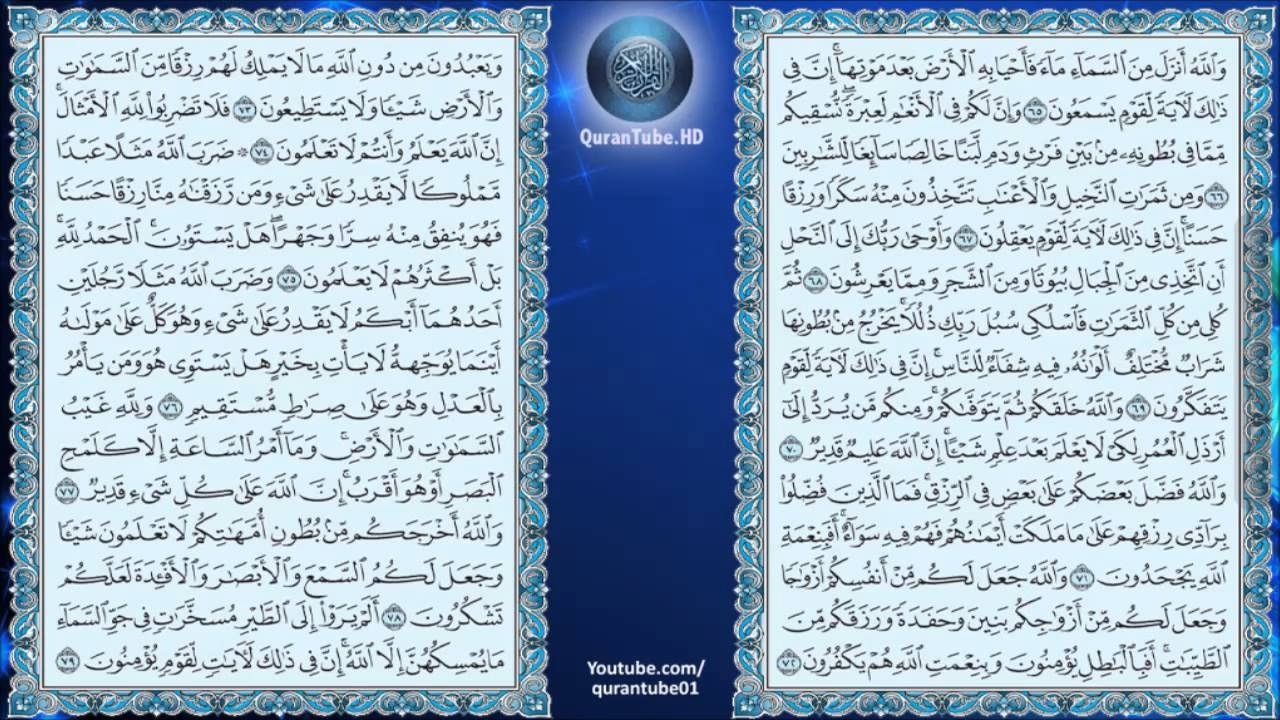 وَٱللَّهُ أَنزَلَ مِنَ ٱلسَّمَآءِ مَآءً فَأَحْيَا بِهِ ٱلْأَرْضَ بَعْدَ مَوْتِهَآ ۚ إِنَّ فِى
ذَٰلِكَ لَـَٔايَةً لِّقَوْمٍ يَسْمَعُونَ ٦٥ وَإِنَّ لَكُمْ فِى ٱلْأَنْعَٰمِ لَعِبْرَةً ۖ نُّسْقِيكُم
مِّمَّا فِى بُطُونِهِۦ مِنۢ بَيْنِ فَرْثٍ وَدَمٍ لَّبَنًا خَالِصًا سَآئِغًا لِّلشَّٰرِبِينَ
٦٦ وَمِن ثَمَرَٰتِ ٱلنَّخِيلِ وَٱلْأَعْنَٰبِ تَتَّخِذُونَ مِنْهُ سَكَرًا وَرِزْقًا
حَسَنًا ۗ إِنَّ فِى ذَٰلِكَ لَـَٔايَةً لِّقَوْمٍ يَعْقِلُونَ ٦٧ وَأَوْحَىٰ رَبُّكَ إِلَى ٱلنَّحْلِ
أَنِ ٱتَّخِذِى مِنَ ٱلْجِبَالِ بُيُوتًا وَمِنَ ٱلشَّجَرِ وَمِمَّا يَعْرِشُونَ ٦٨ ثُمَّ
كُلِى مِن كُلِّ ٱلثَّمَرَٰتِ فَٱسْلُكِى سُبُلَ رَبِّكِ ذُلُلًا ۚ يَخْرُجُ مِنۢ بُطُونِهَا
شَرَابٌ مُّخْتَلِفٌ أَلْوَٰنُهُۥ فِيهِ شِفَآءٌ لِّلنَّاسِ ۗ إِنَّ فِى ذَٰلِكَ لَـَٔايَةً لِّقَوْمٍ
يَتَفَكَّرُونَ ٦٩ وَٱللَّهُ خَلَقَكُمْ ثُمَّ يَتَوَفَّىٰكُمْ ۚ وَمِنكُم مَّن يُرَدُّ إِلَىٰٓ
أَرْذَلِ ٱلْعُمُرِ لِكَىْ لَا يَعْلَمَ بَعْدَ عِلْمٍ شَيْـًٔا ۚ إِنَّ ٱللَّهَ عَلِيمٌ قَدِيرٌ ٧٠
وَٱللَّهُ فَضَّلَ بَعْضَكُمْ عَلَىٰ بَعْضٍ فِى ٱلرِّزْقِ ۚ فَمَا ٱلَّذِينَ فُضِّلُوا۟
بِرَآدِّى رِزْقِهِمْ عَلَىٰ مَا مَلَكَتْ أَيْمَٰنُهُمْ فَهُمْ فِيهِ سَوَآءٌ ۚ أَفَبِنِعْمَةِ
ٱللَّهِ يَجْحَدُونَ ٧١ وَٱللَّهُ جَعَلَ لَكُم مِّنْ أَنفُسِكُمْ أَزْوَٰجًا
وَجَعَلَ لَكُم مِّنْ أَزْوَٰجِكُم بَنِينَ وَحَفَدَةً وَرَزَقَكُم مِّنَ
ٱلطَّيِّبَٰتِ ۚ أَفَبِٱلْبَٰطِلِ يُؤْمِنُونَ وَبِنِعْمَتِ ٱللَّهِ هُمْ يَكْفُرُونَ ٧٢
القرآن الكريم
QuranTube.HD
Youtube.com/
qurantube01
وَيَعْبُدُونَ مِن دُونِ ٱللَّهِ مَا لَا يَمْلِكُ لَهُمْ رِزْقًا مِّنَ ٱلسَّمَٰوَٰتِ
وَٱلْأَرْضِ شَيْـًٔا وَلَا يَسْتَطِيعُونَ ٧٣ فَلَا تَضْرِبُوا۟ لِلَّهِ ٱلْأَمْثَالَ ۚ
إِنَّ ٱللَّهَ يَعْلَمُ وَأَنتُمْ لَا تَعْلَمُونَ ٧٤ ۞ ضَرَبَ ٱللَّهُ مَثَلًا عَبْدًا
مَّمْلُوكًا لَّا يَقْدِرُ عَلَىٰ شَىْءٍ وَمَن رَّزَقْنَٰهُ مِنَّا رِزْقًا حَسَنًا
فَهُوَ يُنفِقُ مِنْهُ سِرًّا وَجَهْرًا ۖ هَلْ يَسْتَوُۥنَ ۚ ٱلْحَمْدُ لِلَّهِ ۚ
بَلْ أَكْثَرُهُمْ لَا يَعْلَمُونَ ٧٥ وَضَرَبَ ٱللَّهُ مَثَلًا رَّجُلَيْنِ
أَحَدُهُمَآ أَبْكَمُ لَا يَقْدِرُ عَلَىٰ شَىْءٍ وَهُوَ كَلٌّ عَلَىٰ مَوْلَىٰهُ
أَيْنَمَا يُوَجِّههُّ لَا يَأْتِ بِخَيْرٍ ۖ هَلْ يَسْتَوِى هُوَ وَمَن يَأْمُرُ
بِٱلْعَدْلِ ۙ وَهُوَ عَلَىٰ صِرَٰطٍ مُّسْتَقِيمٍ ٧٦ وَلِلَّهِ غَيْبُ
ٱلسَّمَٰوَٰتِ وَٱلْأَرْضِ ۚ وَمَآ أَمْرُ ٱلسَّاعَةِ إِلَّا كَلَمْحِ
ٱلْبَصَرِ أَوْ هُوَ أَقْرَبُ ۚ إِنَّ ٱللَّهَ عَلَىٰ كُلِّ شَىْءٍ قَدِيرٌ ٧٧
وَٱللَّهُ أَخْرَجَكُم مِّنۢ بُطُونِ أُمَّهَٰتِكُمْ لَا تَعْلَمُونَ شَيْـًٔا
وَجَعَلَ لَكُمُ ٱلسَّمْعَ وَٱلْأَبْصَٰرَ وَٱلْأَفْـِٔدَةَ ۙ لَعَلَّكُمْ
تَشْكُرُونَ ٧٨ أَلَمْ يَرَوْا۟ إِلَى ٱلطَّيْرِ مُسَخَّرَٰتٍ فِى جَوِّ ٱلسَّمَآءِ
مَا يُمْسِكُهُنَّ إِلَّا ٱللَّهُ ۗ إِنَّ فِى ذَٰلِكَ لَـَٔايَٰتٍ لِّقَوْمٍ يُؤْمِنُونَ ٧٩